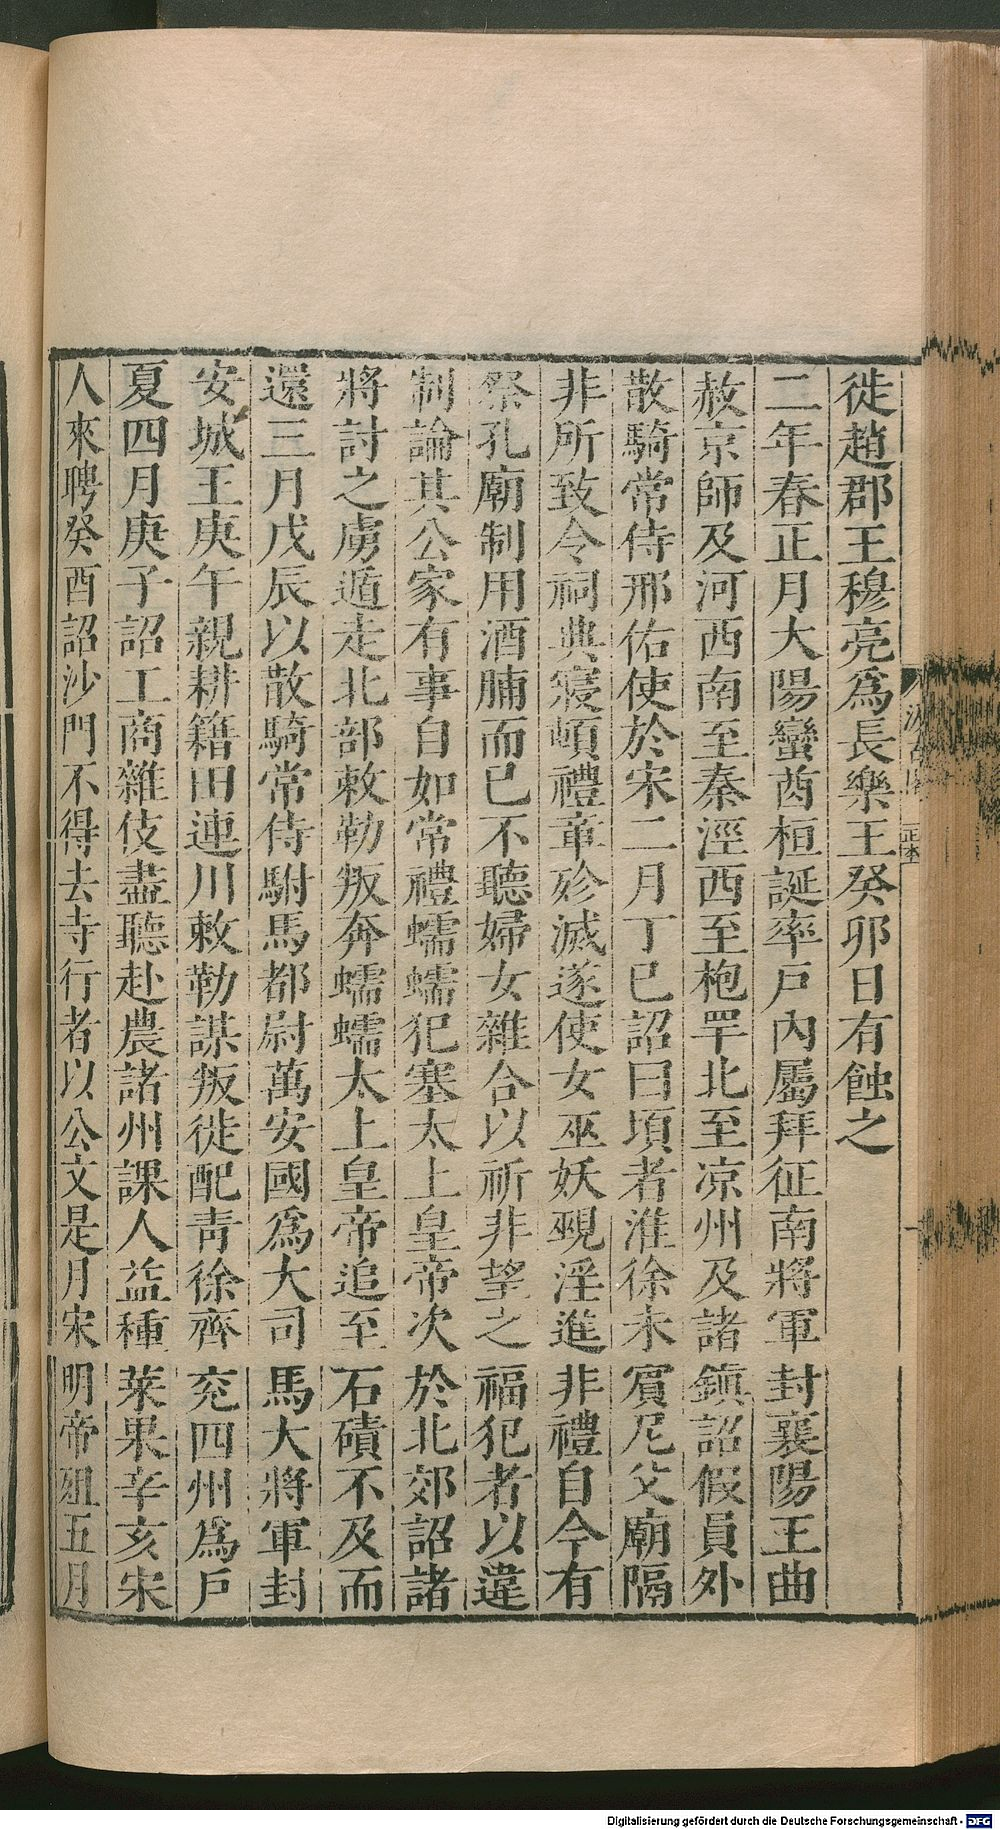 徙趙郡王穆亮爲長樂王癸卯日有蝕之
二年春正月大陽蠻酋桓誕率戶內屬拜征南將軍封襄陽王曲
赦京師及河西南至秦涇西至枹罕北至凉州及諸鎮詔假員外
散騎常侍邢佑使於宋二月丁巳詔曰頃者淮徐未賓尼父廟隔
非所致令祠典寢頓禮章殄滅遂使女巫妖覡淫進非禮自今有
祭孔廟制用酒脯而已不聽婦女雜合以祈非望之福犯者以違
制論其公家有事自如常禮蠕蠕犯塞太上皇帝次於北郊詔諸
將討之虜遁走北部敕勒叛奔蠕蠕太上皇帝追至石磧不及而
還三月戊辰以散騎常侍駙馬都尉萬安國爲大司馬大將軍封
安城王庚午親耕籍田連川敕勒謀叛徙配青徐齊兖四州爲戶
夏四月庚子詔工商雜伎盡聽赴農諸州課人益種萊果辛亥宋
人來聘癸酉詔沙門不得去寺行者以公文是月宋明帝殂五月
正本
Digitalisierung gefördert durch die Deutsche Forschungsgemeinschaft - DFG